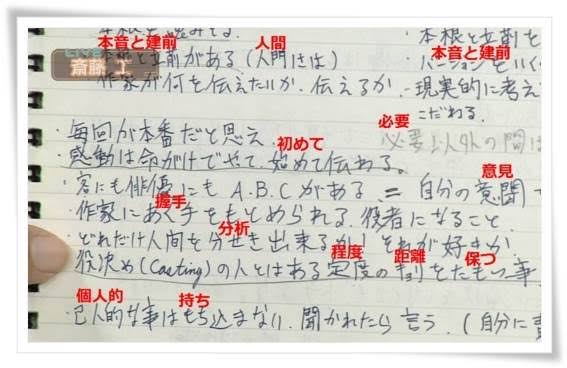 ・本根と立前を
本音と建前 人間 本音と建前
LIVE
斎藤 工
立前がある(人門
作家が何を伝えたいか、伝えるか
・現実的に考え
こだわる。
必要
必要以外の間は
・毎回が本番だと思え
初めて
・感動は命がけでやって、始めて伝わる。
意見
・客にも俳優にもA.B.Cがある = 自分の意聞
握手
・作家にあく手をもとめられる、役者になること。
分析
・どれだけ人間を分せき出来るか! それが好きか
程度 距離 保つ
役決め(Casting)の人とはある定度のキョリをたもつ事
個人的 持ち
・己人的な事はもち込まない、聞かれたら言う。(自分に